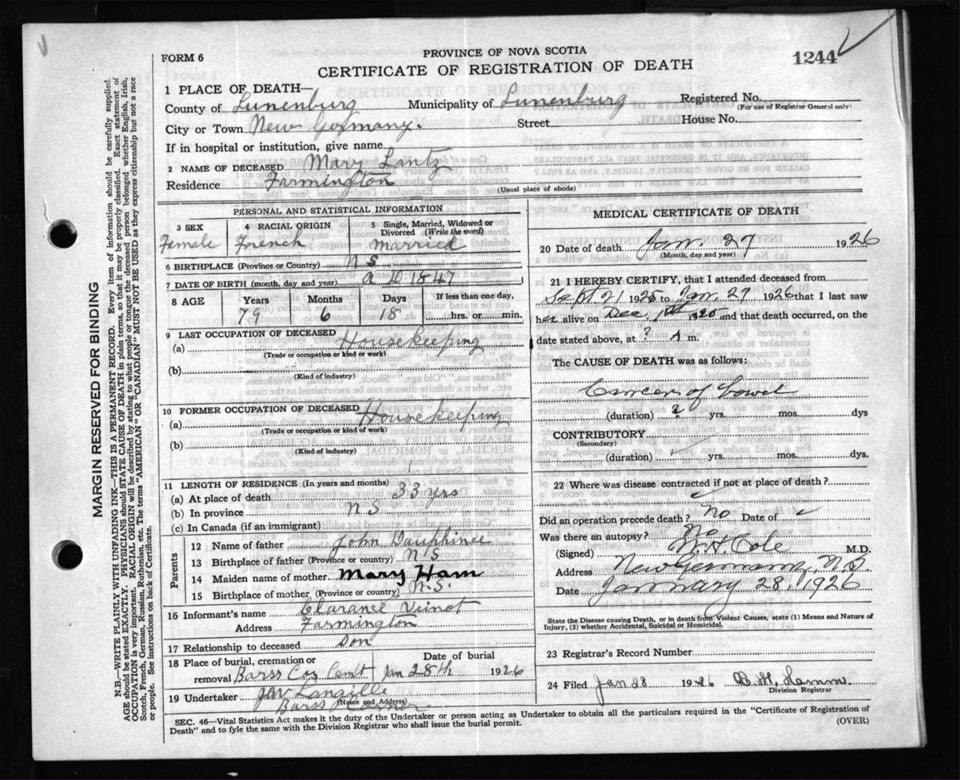 FORM 6
PROVINCE OF NOVA SCOTIA
CERTIFICATE OF REGISTRATION OF DEATH
1244
1 PLACE OF DEATH—
County of Lunenburg Municipality of Lunenburg Registered No.
(For use of Registrar General only)
City or Town New Germany. Street House No.
If in hospital or institution, give name
2 NAME OF DECEASED Mary Lantz
Residence Farmington
(Usual place of abode)
PERSONAL AND STATISTICAL INFORMATION
3 SEX 4 RACIAL ORIGIN 5 Single, Married, Widowed or Divorced (Write the word)
Female French Married
6 BIRTHPLACE (Province or Country) N S
7 DATE OF BIRTH (month, day, and year) A D 1847
8 AGE Years Months Days If less than one day,
79 6 18 hrs. or min.
9 LAST OCCUPATION OF DECEASED
(a) Housekeeping
(Trade or occupation or kind or work)
(b)
(Kind of industry)
10 FORMER OCCUPATION OF DECEASED
(a) Housekeeping
(Trade or occupation or kind of work)
(b)
(Kind of industry)
11 LENGTH OF RESIDENCE (In years and months)
(a) At place of death 33 yrs
(b) In province N S
(c) In Canada (if an immigrant)
Parents
12 Name of father John Dauphinee
13 Birthplace of father (Province or country) N S
14 Maiden name of mother Mary Ham
15 Birthplace of mother (Province or country) N.S.
16 Informant's name Clarance
Address Farmington
17 Relationship to deceased Son
18 Place of burial, cremation or removal Date of burial
Barss Cor Cemt Jan 28th 1926
19 Undertaker J W Langille
(Name and Address)
Barss Corner
MEDICAL CERTIFICATE OF DEATH
20 Date of death Jan. 27 1926
(Month, day and year)
21 I HEREBY CERTIFY, that I attended deceased from
Sept 21 1925 to Jan. 27 1926 that I last saw
her alive on Dec. and that death occurred, on the
date stated above, at ? A m.
The CAUSE OF DEATH was as follows:
Cancer of bowel
(duration) 2 yrs. mos. dys
CONTRIBUTORY
(Secondary)
(duration) yrs. mos. dys.
22 Where was disease contracted if not at place of death?
Did an operation precede death? No Date of
Was there an autopsy? No
(Signed) Cole M.D.
Address New Germany, N.S.
Date January 28, 1926
State the Disease causing Death, or in death from Violent Causes, state (1) Means and Nature
of Injury, (2) whether Accidental, Suicidal or Homicidal.
23 Registrar's Record Number
24 Filed Jan 28 1926
Division Registrar
SEC. 46—Vital Statistics Act makes it the duty of the Undertaker or person acting as Undertaker to obtain all the particulars required in the "Certificate of Registration of
Death" and to fyle the same with the Division Registrar who shall issue the burial permit. (OVER)
MARGIN RESERVED FOR BINDING
N.B.—WRITE PLAINLY WITH UNFADING INK—THIS IS A PERMANENT RECORD. Every item of information should be carefully supplied.
AGE should be stated EXACTLY. PHYSICIANS should STATE CAUSE OF DEATH in plain terms, so that it may be properly classified. Exact statement of
OCCUPATION is very important. RACIAL ORIGIN will be described by stating to what people or tongue the deceased person belonged whether English, Irish,
Scotch, French, German, Russian, Ruthenian, etc. The terms "AMERICAN" OR "CANADIAN" MUST NOT BE USED as they express citizenship but not a race
or people. See instructions on back of Certificate.